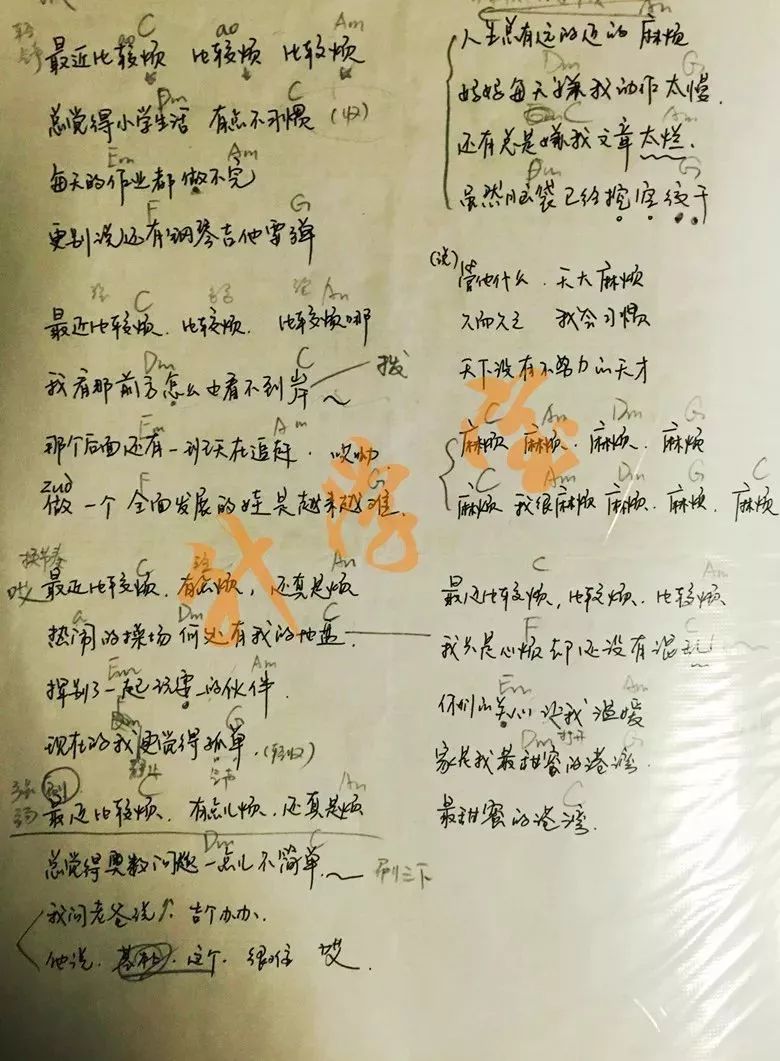 C ao Am
最近比较烦 比较烦 比较烦
Dm C
总觉得小学生活 有点不习惯 (收)
Em Am
每天的作业都做不完
F G
更别说还有钢琴吉他要弹
C Am
最近比较烦、比较烦、比较烦哪
Dm C
我看那前方怎么也看不到岸 拨
Em Am
那个后面还有一班天天在追赶、哎呦
zuò F G
做一个全面发展的娃是越来越难
换节奏 C Am
哎 最近比较烦、有点烦、还真是烦
a Dm C
热闹的操场何处有我的地盘
Em Am
挥别了一起玩耍的伙伴
G
现在的我更觉得孤单 (轻收)
C Am
最近比较烦、有点儿烦、还真是烦
Dm C
总觉得奥数问题一点儿不简单 刷三下
我问老爸说 咋个办办、
他说、基本、这个、很难 哎
Am
人生总有远的近的麻烦
Dm G
妈妈每天嫌我动作太慢
C Am
还有总是嫌我文章太烂
Dm G
虽然脑袋已经挖空绞干
(说)
管他什么、天大麻烦
久而久之 我会习惯
天下没有不努力的天才
C Am Dm G
麻烦 麻烦、麻烦、麻烦
C Am Dm G C
麻烦 我很麻烦 麻烦、麻烦、麻烦
C Am
最近比较烦，比较烦、比较烦
F C
我只是心烦却还没有混乱
Em Am
你们的关心让我温暖
Dm 打开 G
家是我最甜蜜的港湾
C
最甜蜜的港湾